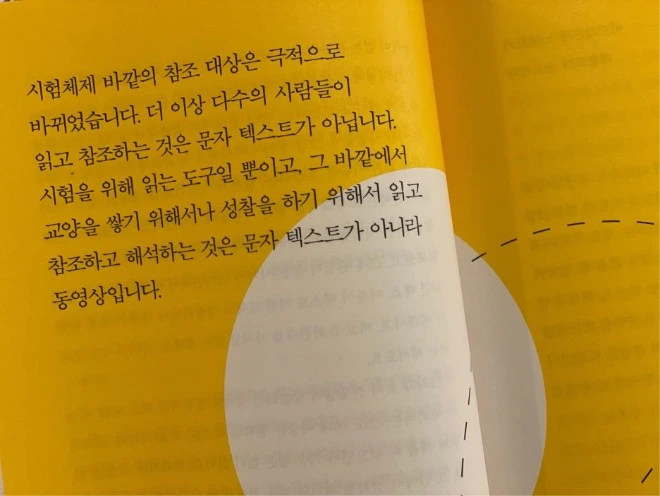 시험체제 바깥의 참조 대상은 극적으로
바뀌었습니다. 더 이상 다수의 사람들이
읽고 참조하는 것은 문자 텍스트가 아닙니다.
시험을 위해 읽는 도구일 뿐이고, 그 바깥에서
교양을 쌓기 위해서나 성찰을 하기 위해서 읽고
참조하고 해석하는 것은 문자 텍스트가 아니라
동영상입니다.